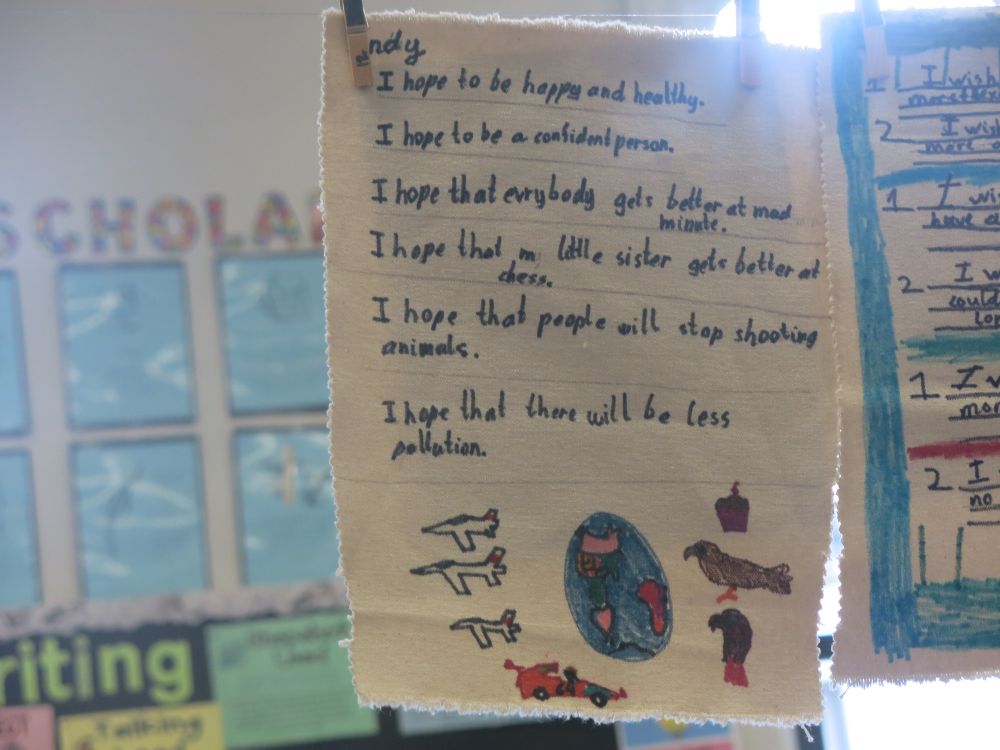 ndy
I hope to be happy and healthy.
I hope to be a confident person.
I hope that evrybody gets better at mad
minute.
I hope that my little sister gets better at
chess.
I hope that people will stop shooting
animals.
I hope that there will be less
pollution.
I wish
2 I wish
more
1 I wi
have
2 I w
could
lon
1 I w
mor
2 I
no
SCHOLA
riting
Talking